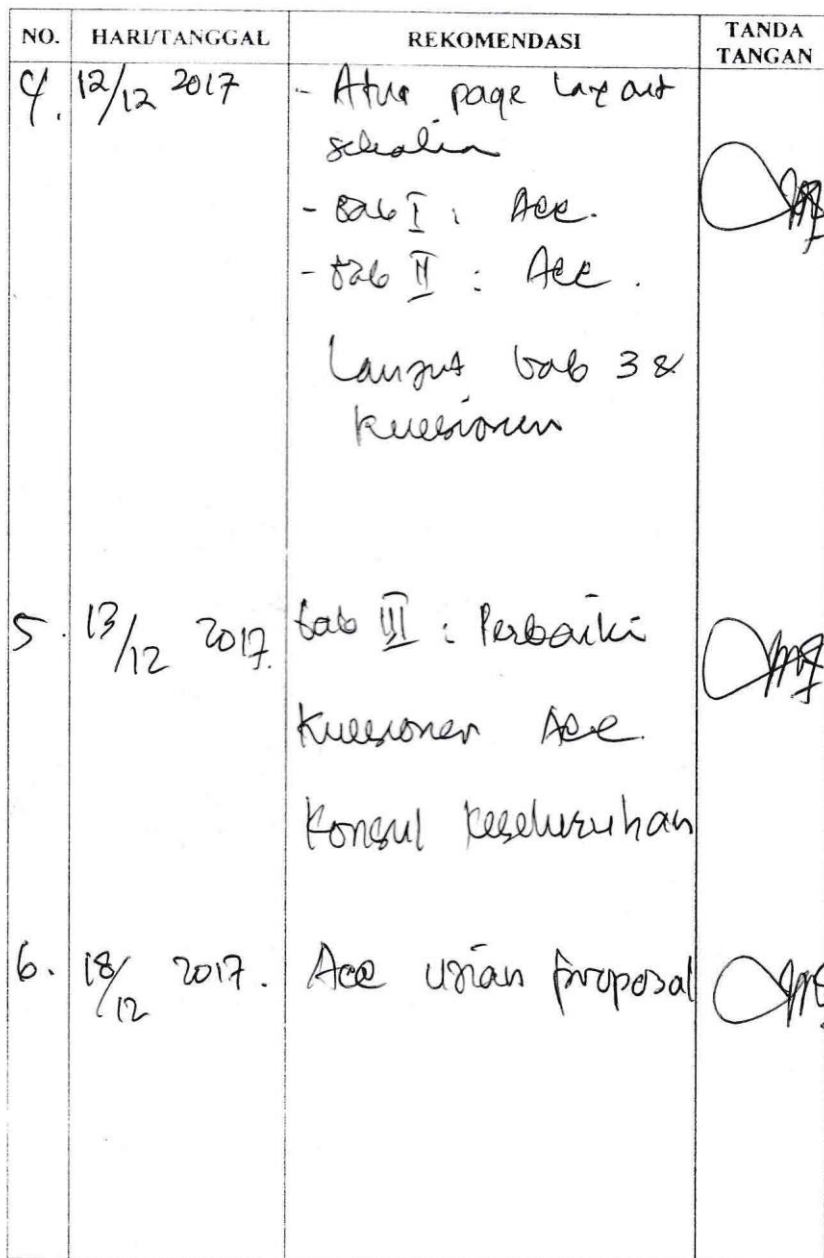 NO. HARI/TANGGAL REKOMENDASI TANDA TANGAN
4. 12/12 2017 - Atur page lay out
sekalian
- Bab I : Acc.
- Bab II : Acc.
Lanjut bab 3 &
kuesioner
5. 13/12 2017. bab III : Perbaiki
Kuesioner Acc.
Konsul keseluruhan
6. 18/12 2017. Acc ujian proposal